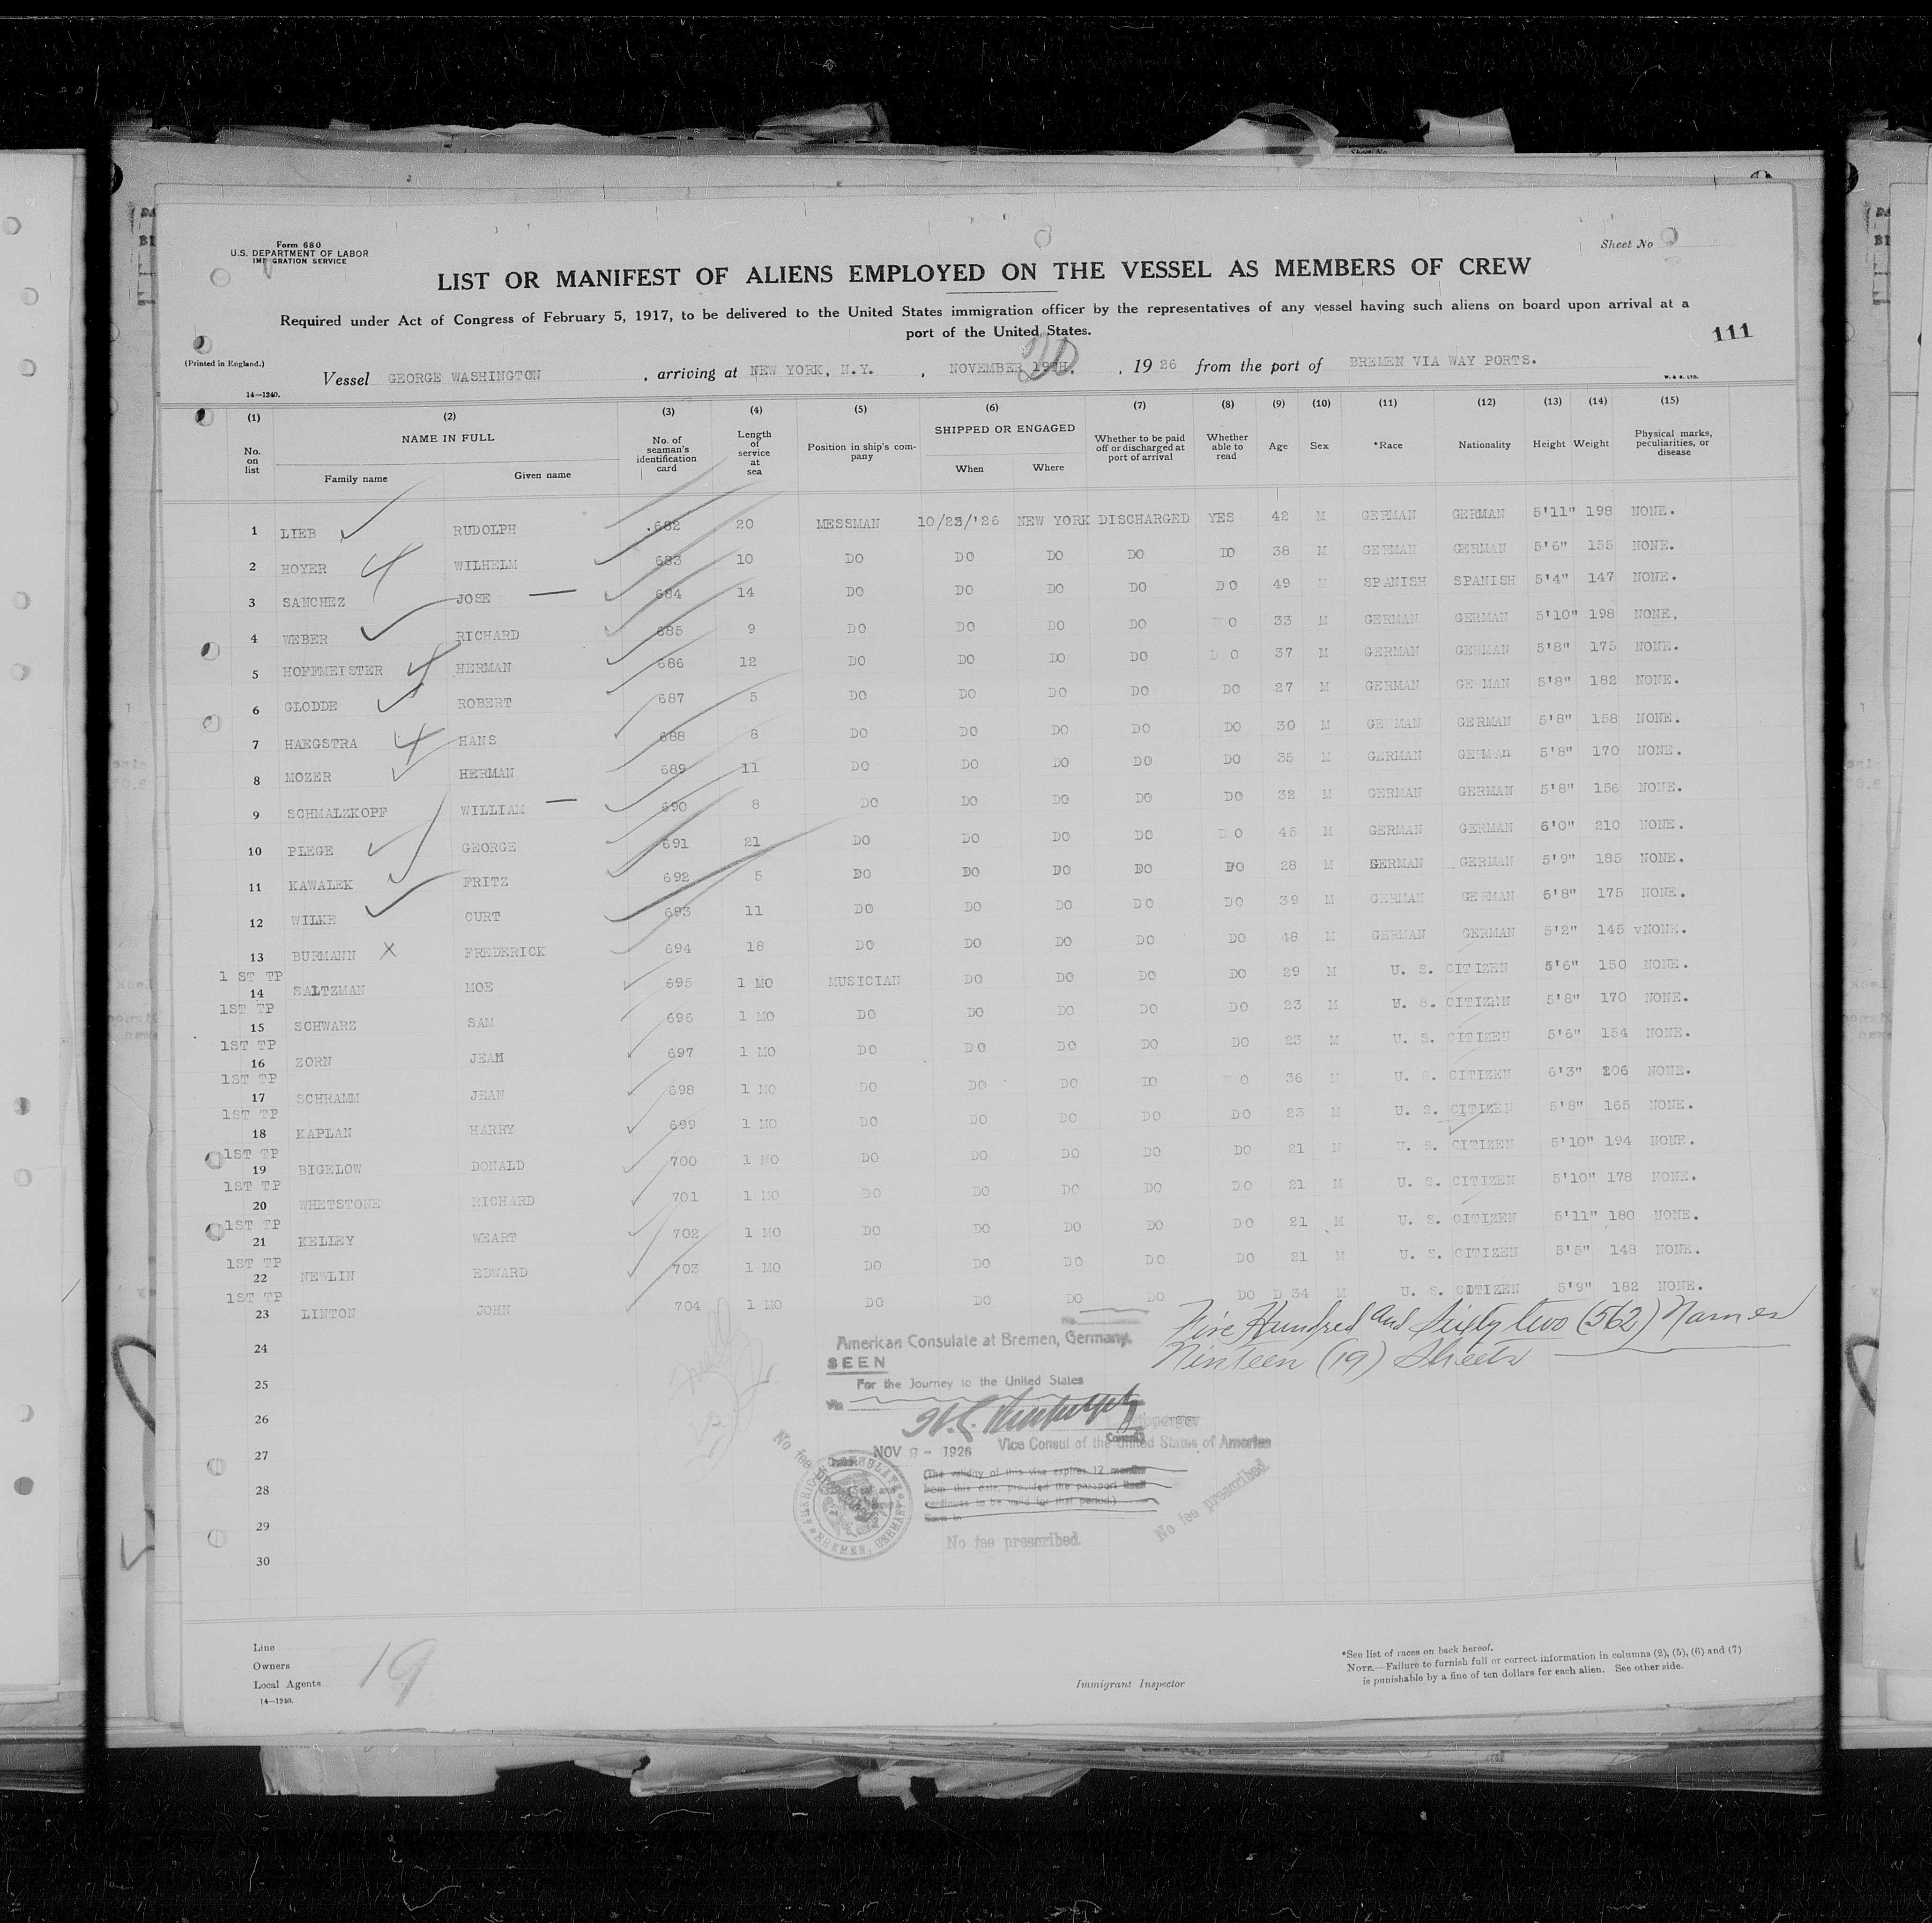 Form 680
U.S. DEPARTMENT OF LABOR
IMMIGRATION SERVICE
Sheet No
LIST OR MANIFEST OF ALIENS EMPLOYED ON THE VESSEL AS MEMBERS OF CREW
Required under Act of Congress of February 5, 1917, to be delivered to the United States immigration officer by the representatives of any vessel having such aliens on board upon arrival at a
port of the United States.
111
(Printed in England.)
Vessel GEORGE WASHINGTON , arriving at NEW YORK, N.Y. , NOVEMBER 19TH, 20 , 1926 from the port of BREMEN VIA WAY PORTS.
14—1240.
W. & S. LTD.
(1) (2) (3) (4) (5) (6) (7) (8) (9) (10) (11) (12) (13) (14) (15)
No. on list NAME IN FULL Family name Given name No. of seaman's identification card Length of service at sea Position in ship's company SHIPPED OR ENGAGED When Where Whether to be paid off or discharged at port of arrival Whether able to read Age Sex *Race Nationality Height Weight Physical marks, peculiarities, or disease
1 LIEB RUDOLPH 682 20 MESSMAN 10/23/'26 NEW YORK DISCHARGED YES 42 M GERMAN GERMAN 5'11" 198 NONE.
2 HOYER WILHELM 683 10 DO DO DO DO DO 38 M GERMAN GERMAN 5'6" 155 NONE.
3 SANCHEZ JOSE — 684 14 DO DO DO DO DO 49 M SPANISH SPANISH 5'4" 147 NONE.
4 WEBER RICHARD 685 9 DO DO DO DO DO 33 M GERMAN GERMAN 5'10" 198 NONE.
5 HOFFMEISTER HERMAN 686 12 DO DO DO DO DO 37 M GERMAN GERMAN 5'8" 175 NONE.
6 GLODDE ROBERT 687 5 DO DO DO DO DO 27 M GERMAN GERMAN 5'8" 182 NONE.
7 HAEGSTRA HANS 688 8 DO DO DO DO DO 30 M GERMAN GERMAN 5'8" 158 NONE.
8 MOZER HERMAN 689 11 DO DO DO DO DO 35 M GERMAN GERMAn 5'8" 170 NONE.
9 SCHMALZKOPF WILLIAM — 690 8 DO DO DO DO DO 32 M GERMAN GERMAN 5'8" 156 NONE.
10 PLEGE GEORGE 691 21 DO DO DO DO DO 45 M GERMAN GERMAN 6'0" 210 NONE.
11 KAWALEK FRITZ 692 5 DO DO DO DO DO 28 M GERMAN GERMAN 5'9" 185 NONE.
12 WILKE CURT 693 11 DO DO DO DO DO 39 M GERMAN GERMAN 5'8" 175 NONE.
13 BURMANN X FREDERICK 694 18 DO DO DO DO DO 48 M GERMAN GERMAN 5'2" 145 vNONE.
1 ST TP
14 SALTZMAN MOE 695 1 MO MUSICIAN DO DO DO DO 29 M U. S. CITIZEN 5'6" 150 NONE.
1ST TP
15 SCHWARZ SAM 696 1 MO DO DO DO DO DO 23 M U. S. CITIZEN 5'8" 170 NONE.
1ST TP
16 ZORN JEAN 697 1 MO DO DO DO DO DO 23 M U. S. CITIZEN 5'6" 154 NONE.
1ST TP
17 SCHRAMM JEAN 698 1 MO DO DO DO DO DO 36 M U. S. CITIZEN 6'3" 206 NONE.
1ST TP
18 KAPLAN HARRY 699 1 MO DO DO DO DO DO 23 M U. S. CITIZEN 5'8" 165 NONE.
1ST TP
19 BIGELOW DONALD 700 1 MO DO DO DO DO DO 21 M U. S. CITIZEN 5'10" 194 NONE.
1ST TP
20 WHETSTONE RICHARD 701 1 MO DO DO DO DO DO 21 M U. S. CITIZEN 5'10" 178 NONE.
1ST TP
21 KELLEY WEART 702 1 MO DO DO DO DO DO 21 M U. S. CITIZEN 5'11" 180 NONE.
1ST TP
22 NEWLIN EDWARD 703 1 MO DO DO DO DO DO 21 M U. S. CITIZEN 5'5" 148 NONE.
1ST TP
23 LINTON JOHN 704 1 MO DO DO DO DO DO D 34 M U. S. CITIZEN 5'9" 182 NONE.
24
25
26
27
28
29
30
Five Hundred and Sixty two (562) Names
Nineteen (19) Sheets
No.
American Consulate at Bremen, Germany.
SEEN
For the Journey to the United States
via
Consul
NOV 9 - 1926 Vice Consul of the United States of America
(The validity of this visa expires 12 months
from this date, provided the passport itself
continues to be valid for that period.)
No fee prescribed
No fee prescribed.
No fee prescribed
BREMEN, GERMANY
Line
Owners
Local Agents
14—1240.
19
Immigrant Inspector
*See list of races on back hereof.
NOTE.—Failure to furnish full or correct information in columns (2), (5), (6) and (7)
is punishable by a fine of ten dollars for each alien. See other side.